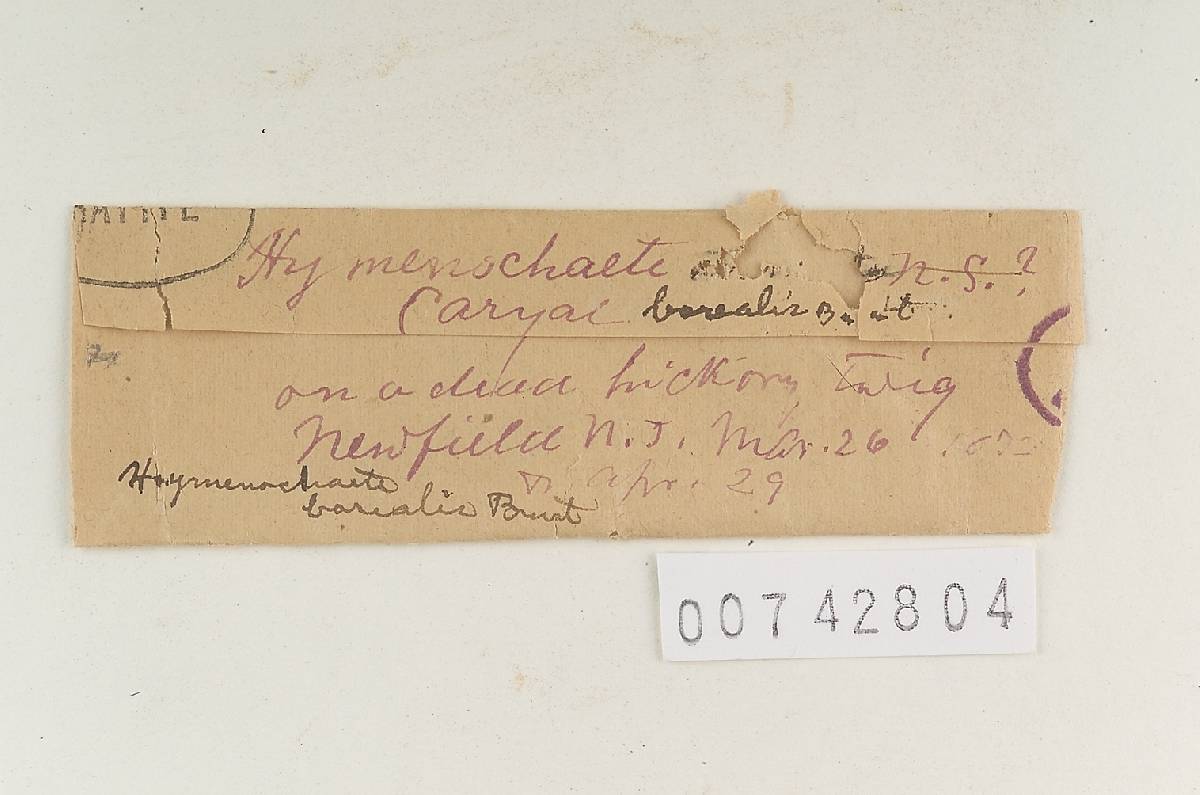 Hymenochaete n.S.?
Caryai borealis
on a dead hickory twig
Newfield N.J. Mar. 26
& Apr. 29
Hymenochaete
borealis Burt
00742804